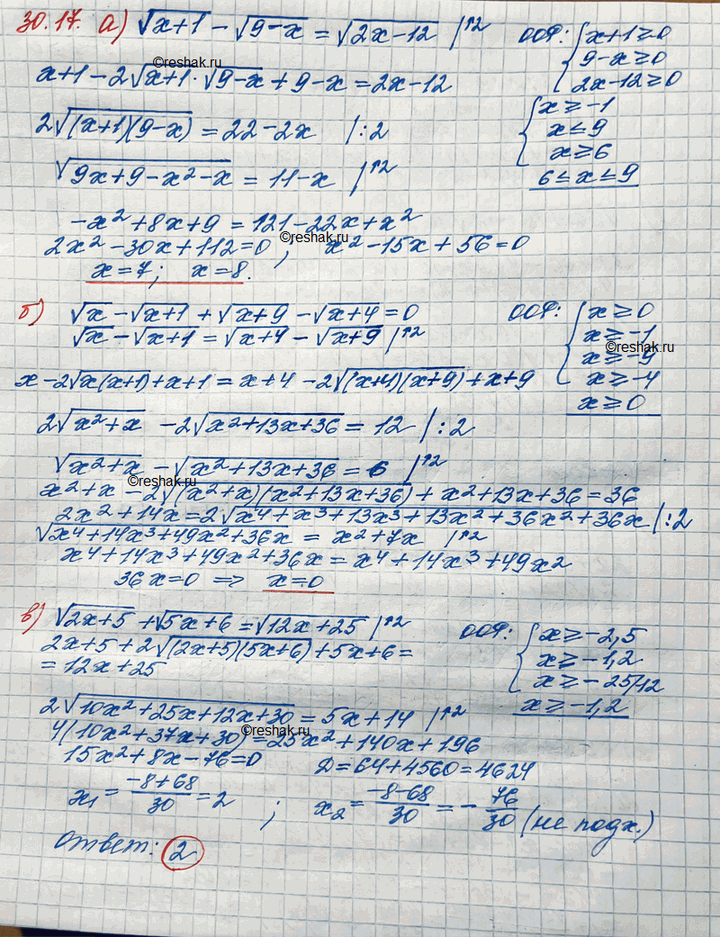 30.17. а) √(x+1) - √(9-x) = √(2x-12) |↑2
ООФ: { x+1≥0
9-x≥0
2x-12≥0
x+1-2√(x+1)·√(9-x)+9-x=2x-12
©reshak.ru
{ x≥-1
x≤9
x≥6
6≤x≤9
2√((x+1)(9-x)) = 22-2x |:2
√(9x+9-x²-x) = 11-x |↑2
-x²+8x+9=121-22x+x²
©reshak.ru
2x²-30x+112=0; x²-15x+56=0
x=7; x=8.
б) √x - √(x+1) + √(x+9) - √(x+4) = 0
ООФ: { x≥0
x≥-1
x≥-9
x≥-4
x≥0
©reshak.ru
√x - √(x+1) = √(x+4) - √(x+9) |↑2
x-2√(x(x+1))+x+1=x+4-2√((x+4)(x+9))+x+9
2√(x²+x) - 2√(x²+13x+36) = 12 |:2
√(x²+x) - √(x²+13x+36) = 6 |↑2
©reshak.ru
x²+x-2√((x²+x)(x²+13x+36))+x²+13x+36=36
2x²+14x=2√(x⁴+x³+13x³+13x²+36x²+36x) |:2
√(x⁴+14x³+49x²+36x) = x²+7x |↑2
x⁴+14x³+49x²+36x=x⁴+14x³+49x²
36x=0 ⇒ x=0
в) √(2x+5) + √(5x+6) = √(12x+25) |↑2
ООФ: { x≥-2,5
x≥-1,2
x≥-25/12
x≥-1,2
2x+5+2√((2x+5)(5x+6))+5x+6=
=12x+25
2√(10x²+25x+12x+30) = 5x+14 |↑2
©reshak.ru
4(10x²+37x+30)=25x²+140x+196
15x²+8x-76=0 D=64+4560=4624
x₁ = (-8+68)/30 = 2; x₂ = (-8-68)/30 = -76/30 (не подх.)
Ответ: 2